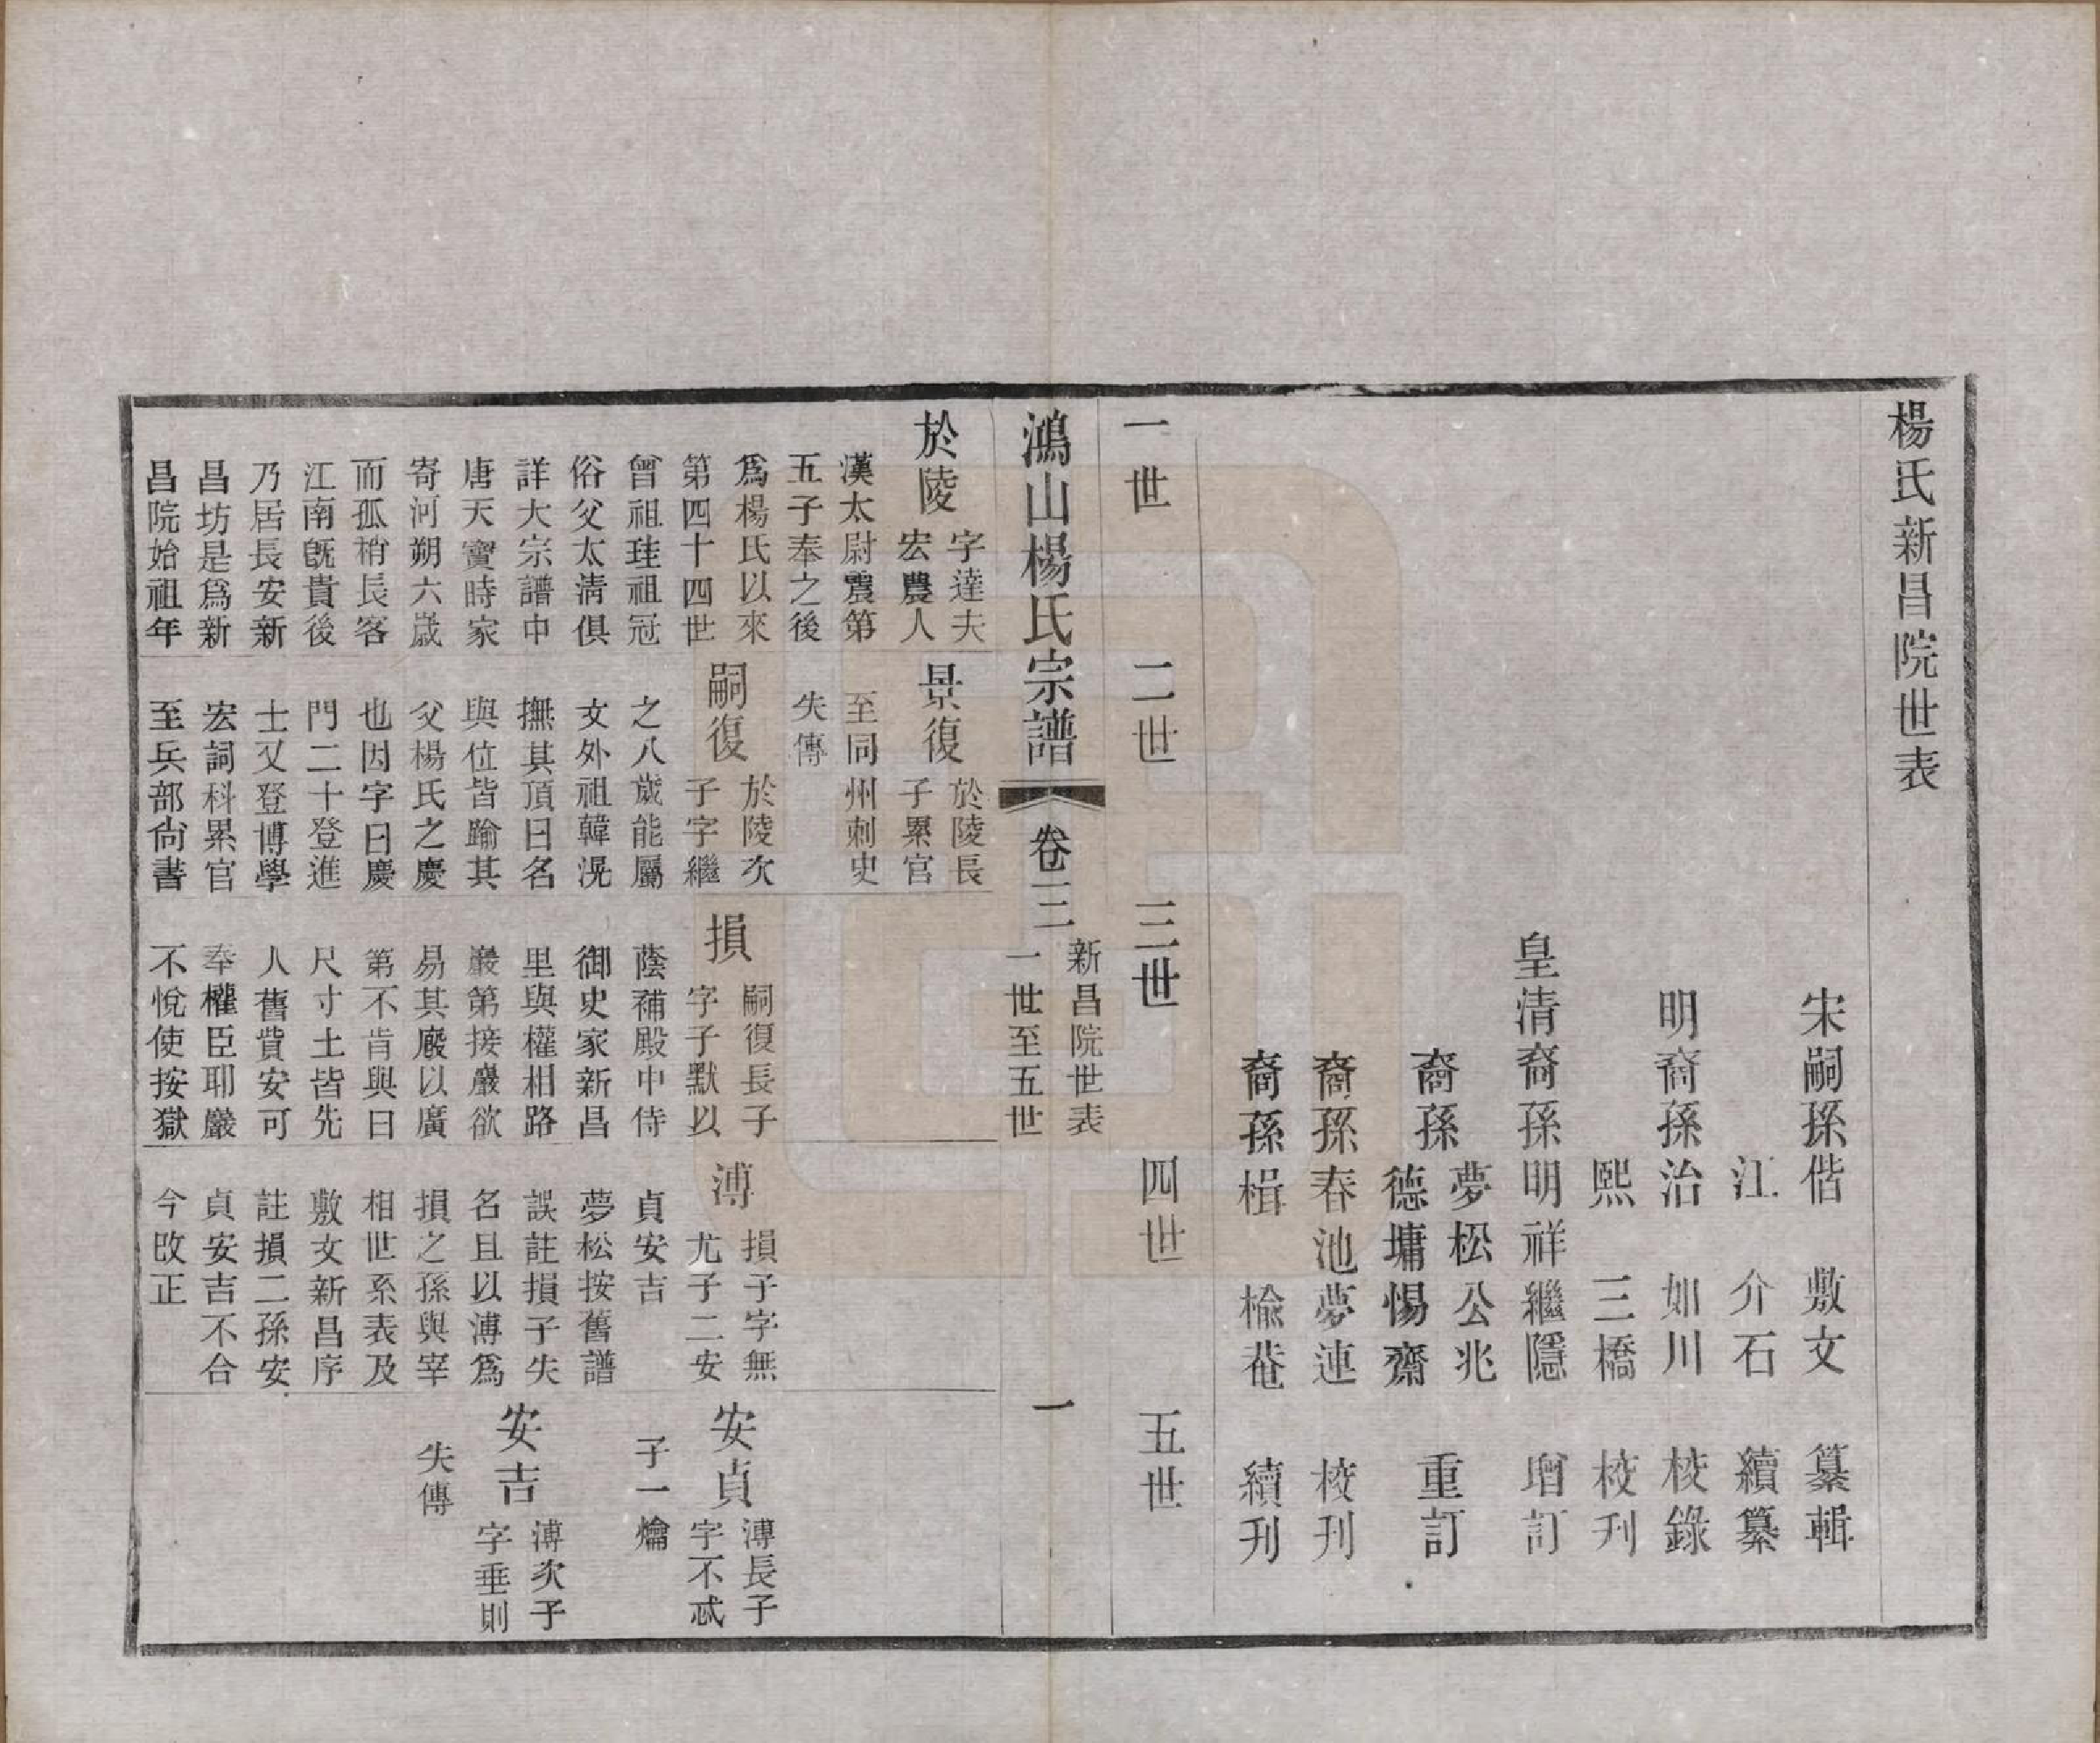 楊氏新昌院世表
宋嗣孫偕 敷文 纂輯
江 介石 續纂
明裔孫治 如川 校錄
熙 三橋 校刋
皇清裔孫明祥繼隱 增訂
裔孫
夢松公兆
德墉惕齋
重訂
裔孫春池夢連 校刋
裔孫楫 榆菴 續刋
一世 二世 三世 四世 五世
鴻山楊氏宗譜 卷三
新昌院世表
一世至五世
一
於陵
字達夫
宏農人
漢太尉震第
五子奉之後
爲楊氏以來
第四十四世
曾祖珪祖冠
俗父太清俱
詳大宗譜中
唐天寶時家
寄河朔六歲
而孤稍長客
江南旣貴後
乃居長安新
昌坊是爲新
昌院始祖年
景復
於陵長
子累官
至同州刺史
失傳
嗣復
於陵次
子字繼
之八歲能屬
文外祖韓滉
撫其頂曰名
與位皆踰其
父楊氏之慶
也因字曰慶
門二十登進
士又登博學
宏詞科累官
至兵部尙書
損
嗣復長子
字子默以
蔭補殿中侍
御史家新昌
里與權相路
巖第接巖欲
易其廄以廣
第不肯與曰
尺寸土皆先
人舊貲安可
奉權臣耶巖
不悅使按獄
溥
損子字無
尤子二安
貞安吉
夢松按舊譜
誤註損子失
名且以溥爲
損之孫與宰
相世系表及
敷文新昌序
註損二孫安
貞安吉不合
今改正
安貞
溥長子
字不忒
子一爚
安吉
溥次子
字垂則
失傳